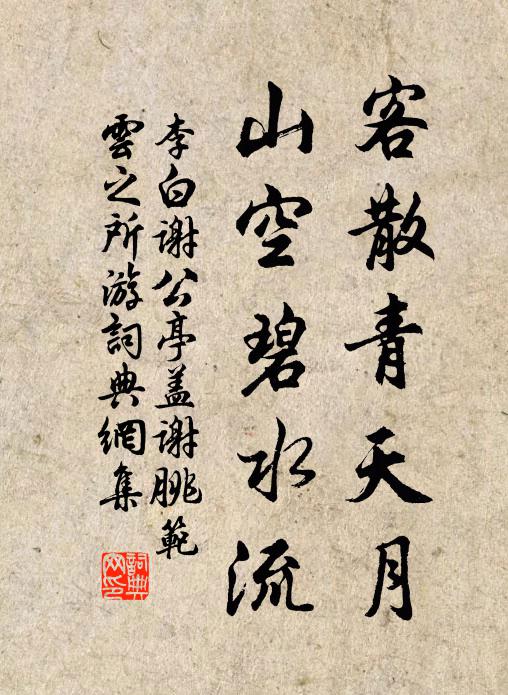 客散青天月
山空碧水流
李白謝公亭蓋謝朓範
雲之所游詞典網集
詞典網印